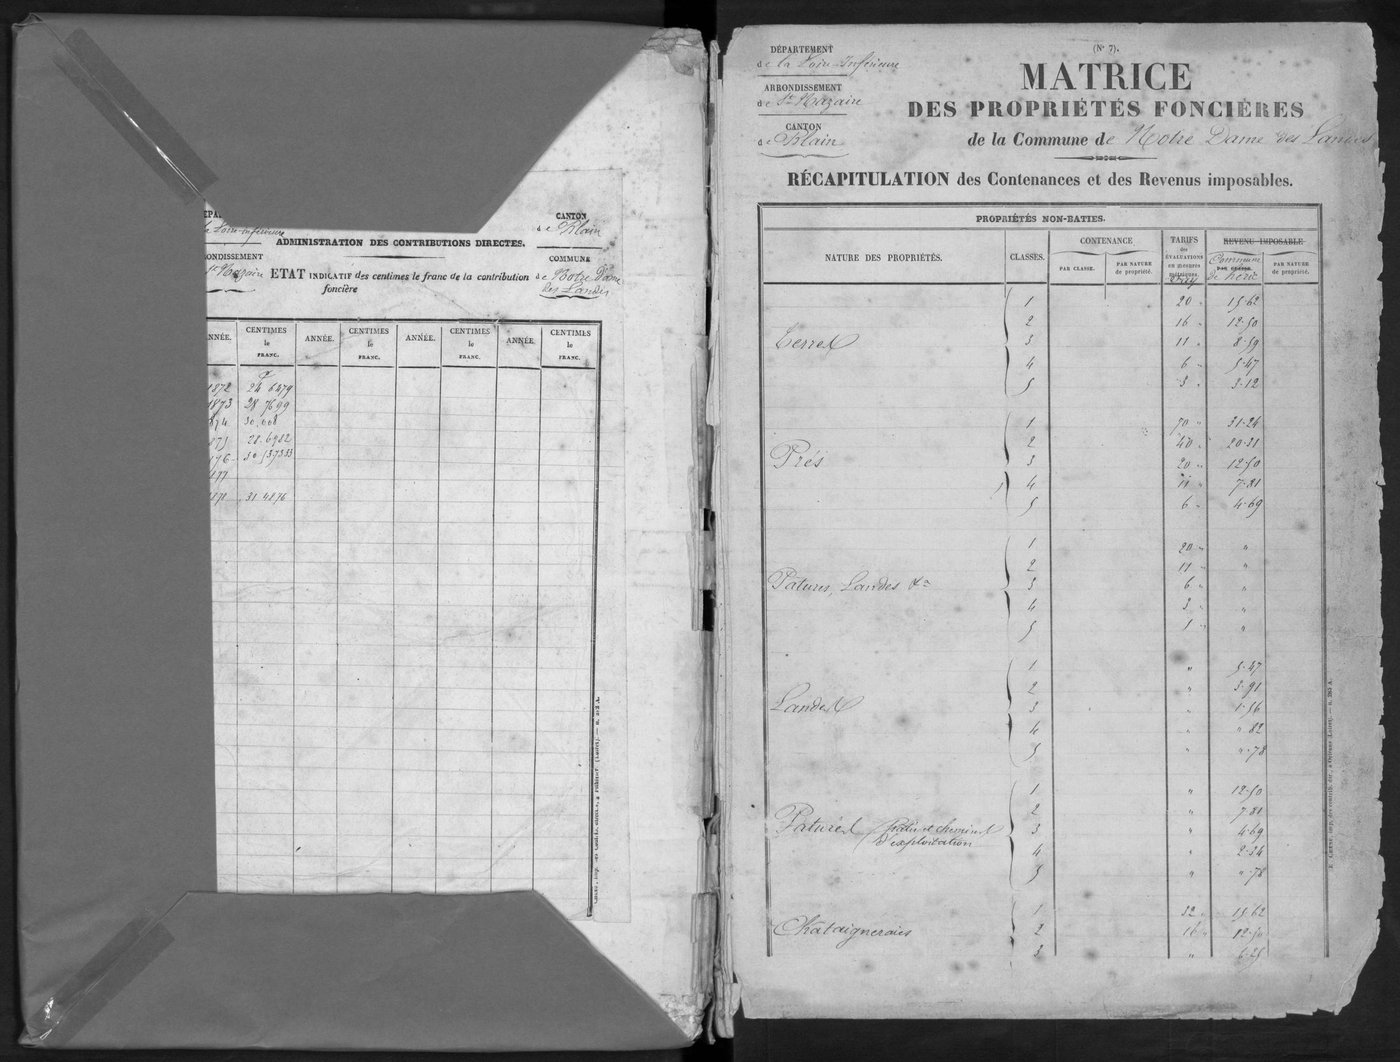 DÉPARTEMENT
la Loire-Inférieure
ARRONDISSEMENT
St Nazaire
CANTON
de Blain
COMMUNE
de Notre Dame
des Landes
ADMINISTRATION DES CONTRIBUTIONS DIRECTES.
ETAT INDICATIF des centimes le franc de la contribution
foncière
ANNÉE. CENTIMES le FRANC. ANNÉE. CENTIMES le FRANC. ANNÉE. CENTIMES le FRANC. ANNÉE. CENTIMES le FRANC.
1872 24 6479
1873 28 7699
874 30.008
875 28.6982
176 30 537333
177
31 4876
(N° 7).
DÉPARTEMENT
de la Loire-Inférieure
ARRONDISSEMENT
de St Nazaire
CANTON
de Blain
MATRICE
DES PROPRIÉTÉS FONCIÈRES
de la Commune de Notre Dame des Landes
RÉCAPITULATION des Contenances et des Revenus imposables.
PROPRIÉTÉS NON-BATIES.
NATURE DES PROPRIÉTÉS. CLASSES. CONTENANCE PAR CLASSE. PAR NATURE de propriété. TARIFS des ÉVALUATIONS en mesures métriques. REVENU IMPOSABLE PAR CLASSE. PAR NATURE de propriété.
Commune
de Héric
1 20 " 15.62
2 16 " 12.50
Terres 3 11 " 8.59
4 6 " 5.47
5 3 " 3.12
1 50 " 31.24
2 40 " 20.31
Prés 3 20 " 12.50
4 11 " 7.81
5 6 " 4.69
1 20 " "
2 11 " "
Patures, Landes &a 3 6 " "
4 3 " "
5 1 " "
1 " 5.47
2 " 3.91
Landes 3 " 1.56
4 " " 82
5 " ".78
1 " 12.50
2 " 7.81
Patures (Patis et chemins 3 " 4.69
d'exploitation 4 " 2.34
5 " ".78
1 32 " 15.62
Châtaigneraies 2 16 " 12.50
3 " 6.25